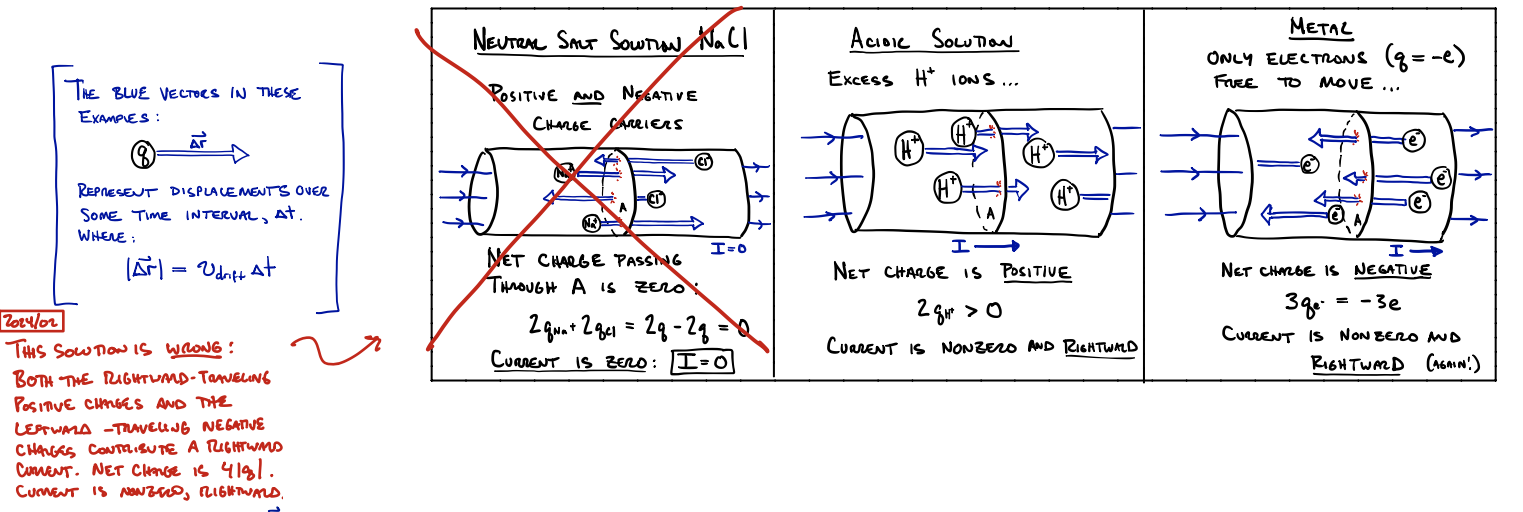 THE BLUE VECTORS IN THESE
EXAMPLES:
q Δr
REPRESENT DISPLACEMENTS OVER
SOME TIME INTERVAL, Δt.
WHERE:
|Δr| = v_drift Δt
2024/02
THIS SOLUTION IS WRONG:
BOTH THE RIGHTWARD-TRAVELING
POSITIVE CHARGES AND THE
LEFTWARD-TRAVELING NEGATIVE
CHARGES CONTRIBUTE A RIGHTWARD
CURRENT. NET CHARGE IS 4|q|.
CURRENT IS NONZERO, RIGHTWARD.
NEUTRAL SALT SOLUTION NaCl
POSITIVE AND NEGATIVE
CHARGE CARRIERS
Na+ Cl-
Cl-
Na+ A
I=0
NET CHARGE PASSING
THROUGH A IS ZERO:
2q_Na + 2q_Cl = 2q - 2q = 0
CURRENT IS ZERO: I=0
ACIDIC SOLUTION
EXCESS H+ IONS...
H+ H+ H+
H+ H+
A
I
NET CHARGE IS POSITIVE
2q_H+ > 0
CURRENT IS NONZERO AND RIGHTWARD
METAL
ONLY ELECTRONS (q = -e)
FREE TO MOVE...
e-
e- e-
e- A e-
I
NET CHARGE IS NEGATIVE
3q_e- = -3e
CURRENT IS NONZERO AND
RIGHTWARD (AGAIN!)